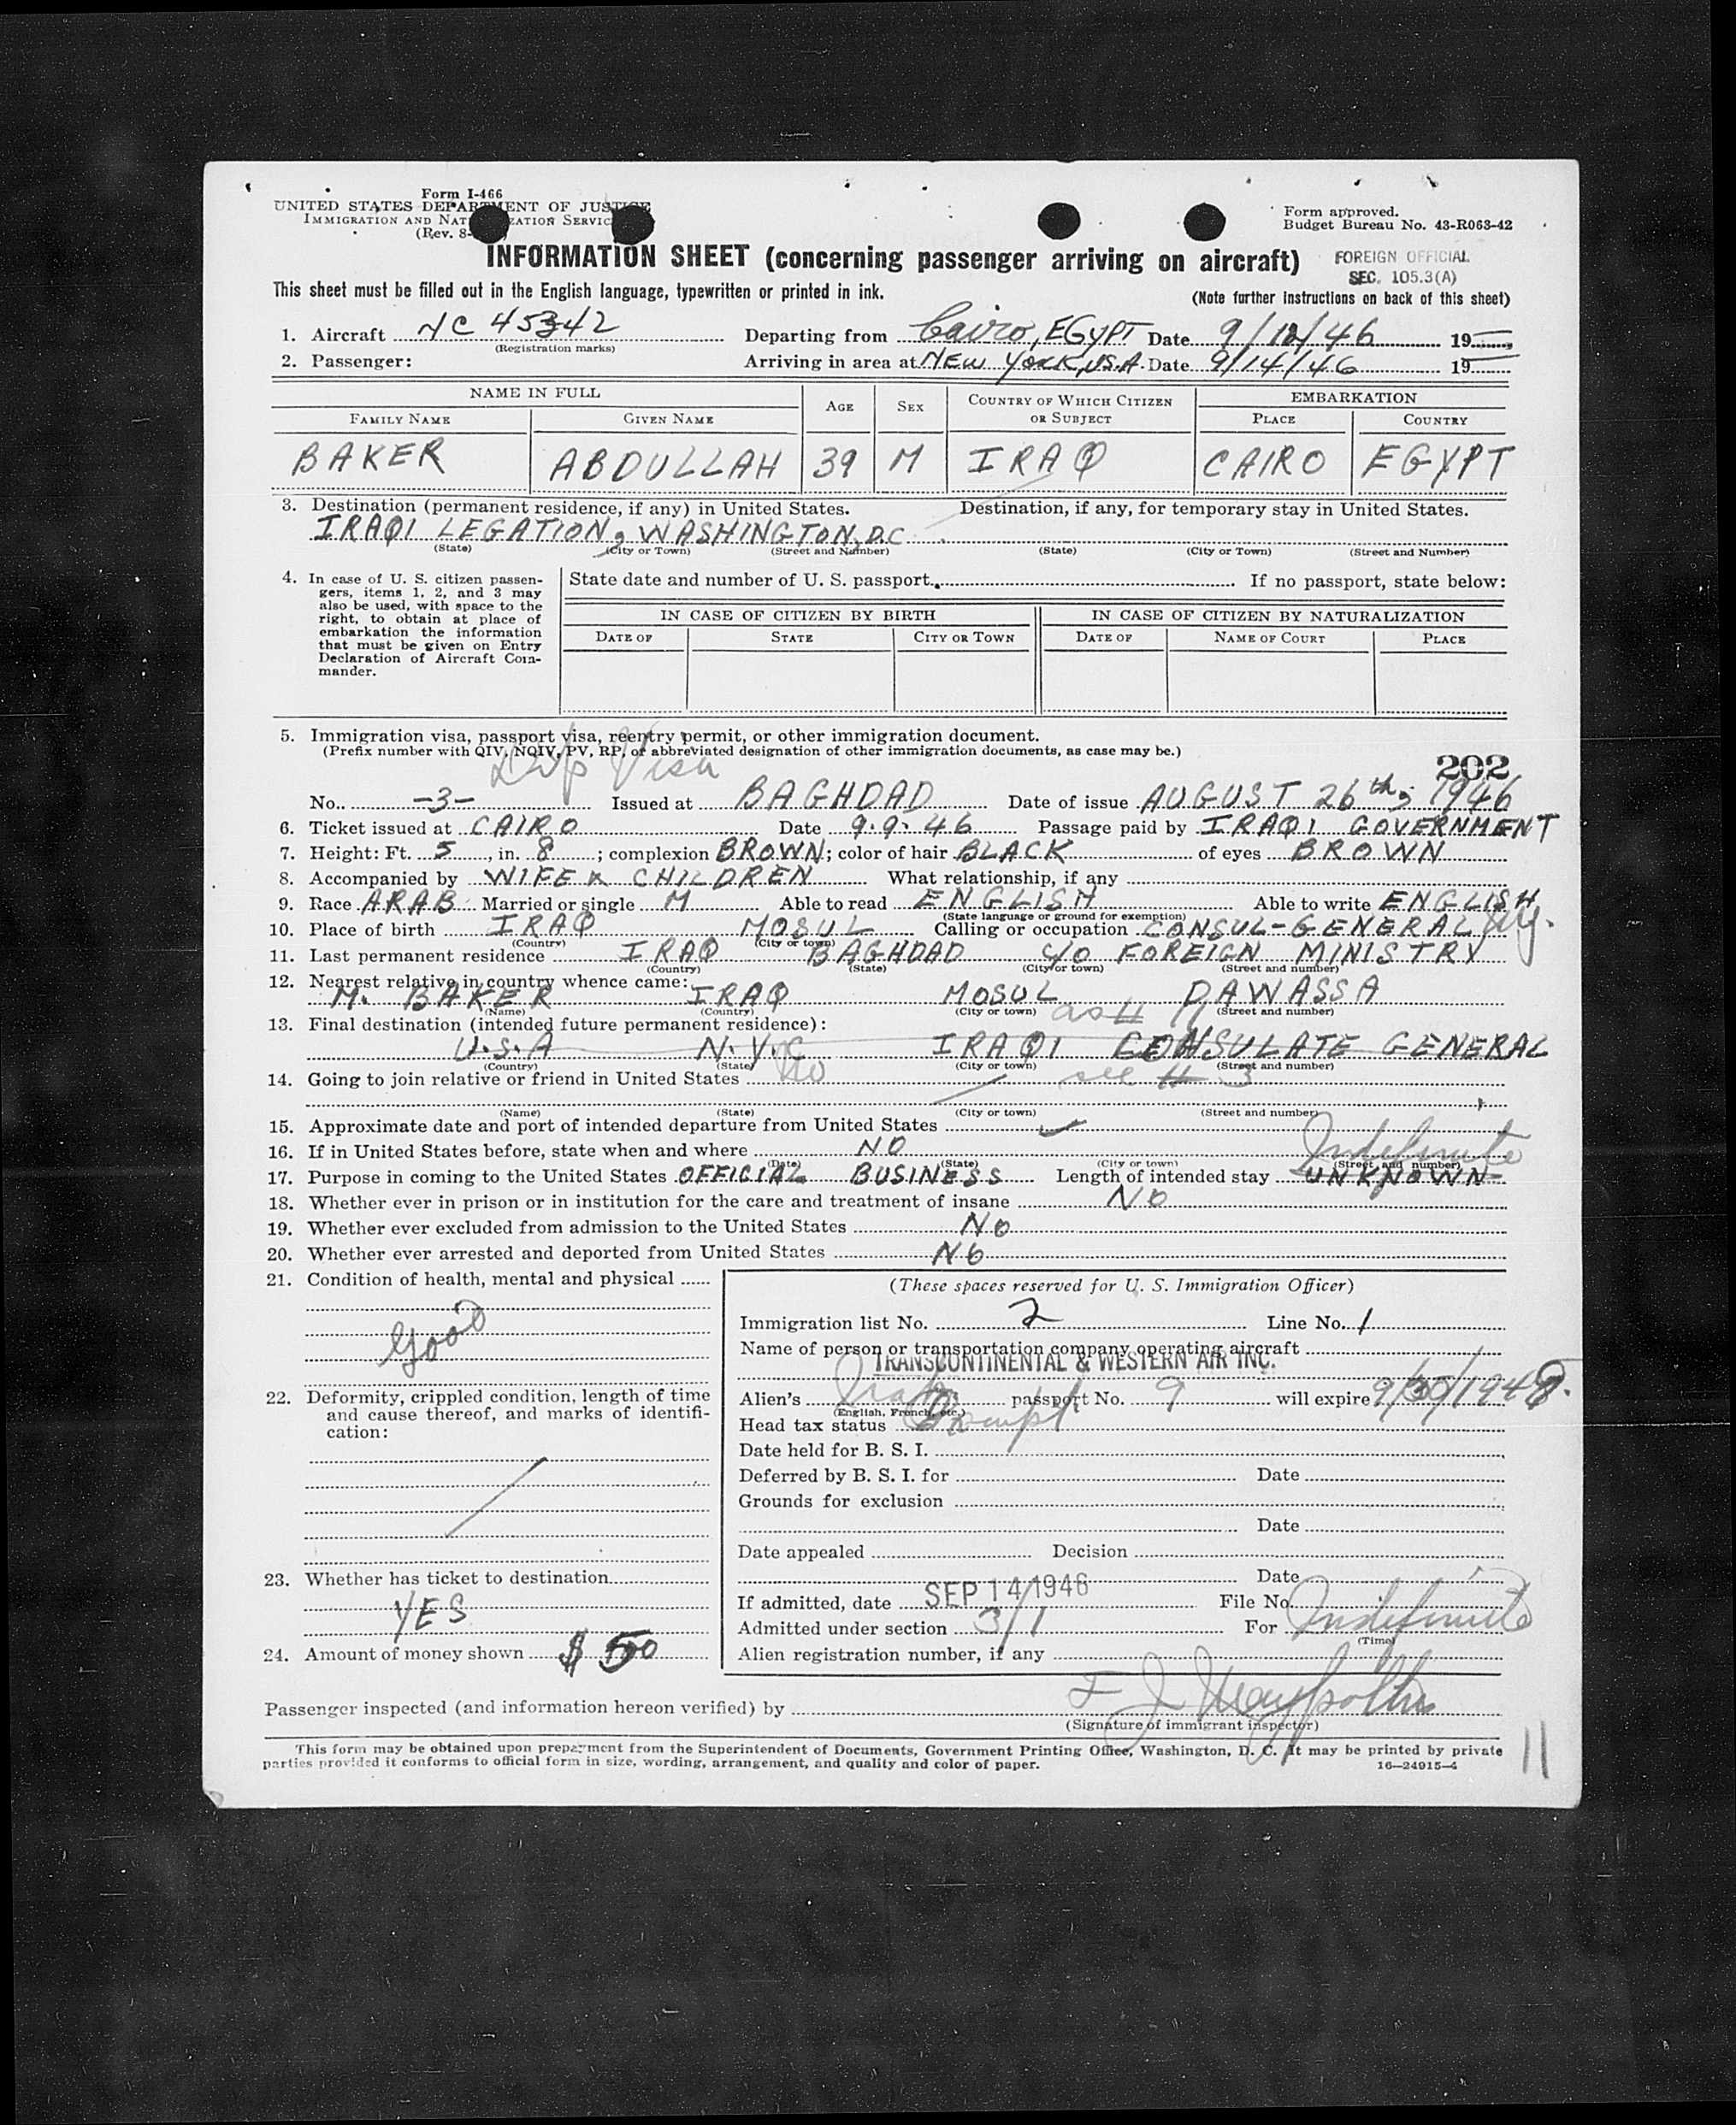 Form I-466
UNITED STATES DEPARTMENT OF JUSTICE
IMMIGRATION AND NAT IZATION SERVIC
(Rev. 8-
Form approved.
Budget Bureau No. 43-R063-42
INFORMATION SHEET (concerning passenger arriving on aircraft)
FOREIGN OFFICIAL
SEC. 105.3(A)
This sheet must be filled out in the English language, typewritten or printed in ink.
(Note further instructions on back of this sheet)
1. Aircraft NC 45342 Departing from Cairo, EGYPT Date 9/12/46 19
(Registration marks)
2. Passenger: Arriving in area at NEW YORK, U.S.A. Date 9/14/46 19
NAME IN FULL AGE SEX COUNTRY OF WHICH CITIZEN OR SUBJECT EMBARKATION
FAMILY NAME GIVEN NAME PLACE COUNTRY
BAKER ABDULLAH 39 M IRAQ CAIRO EGYPT
3. Destination (permanent residence, if any) in United States. Destination, if any, for temporary stay in United States.
IRAQI LEGATION, WASHINGTON, D.C.
(State) (City or Town) (Street and Number) (State) (City or Town) (Street and Number)
4. In case of U. S. citizen passen-
gers, items 1, 2, and 3 may
also be used, with space to the
right, to obtain at place of
embarkation the information
that must be given on Entry
Declaration of Aircraft Com-
mander.
State date and number of U. S. passport. If no passport, state below:
IN CASE OF CITIZEN BY BIRTH IN CASE OF CITIZEN BY NATURALIZATION
DATE OF STATE CITY OR TOWN DATE OF NAME OF COURT PLACE
5. Immigration visa, passport visa, reentry permit, or other immigration document.
(Prefix number with QIV, NQIV, PV, RP, or abbreviated designation of other immigration documents, as case may be.)
Dip Visa
202
No. -3- Issued at BAGHDAD Date of issue AUGUST 26th, 1946
6. Ticket issued at CAIRO Date 9.9.46 Passage paid by IRAQI GOVERNMENT
7. Height: Ft. 5, in. 8; complexion BROWN; color of hair BLACK of eyes BROWN
8. Accompanied by WIFE & CHILDREN What relationship, if any
9. Race ARAB Married or single M Able to read ENGLISH Able to write ENGLISH
(State language or ground for exemption)
10. Place of birth IRAQ MOSUL Calling or occupation CONSUL-GENERAL
(Country) (City or town)
11. Last permanent residence IRAQ BAGHDAD c/o FOREIGN MINISTRY
(Country) (State) (City or town) (Street and number)
12. Nearest relative in country whence came:
M. BAKER IRAQ MOSUL DAWASSA
(Name) (Country) (City or town) (Street and number)
as #11
13. Final destination (intended future permanent residence):
U.S.A N.Y.C. IRAQI CONSULATE GENERAL
(Country) (State) (City or town) (Street and number)
14. Going to join relative or friend in United States No see # 3
(Name) (State) (City or town) (Street and number)
15. Approximate date and port of intended departure from United States
16. If in United States before, state when and where NO Indefinite
(Date) (State) (City or town) (Street and number)
17. Purpose in coming to the United States OFFICIAL BUSINESS Length of intended stay UNKNOWN
18. Whether ever in prison or in institution for the care and treatment of insane NO
19. Whether ever excluded from admission to the United States NO
20. Whether ever arrested and deported from United States NO
21. Condition of health, mental and physical
Good
22. Deformity, crippled condition, length of time
and cause thereof, and marks of identifi-
cation:
23. Whether has ticket to destination
YES
24. Amount of money shown $ 50
(These spaces reserved for U. S. Immigration Officer)
Immigration list No. 2 Line No. 1
Name of person or transportation company operating aircraft
TRANSCONTINENTAL & WESTERN AIR INC.
Alien's Iraq passport No. 9 will expire 9/30/1948.
(English, French, etc.)
Head tax status Exempt
Date held for B. S. I.
Deferred by B. S. I. for Date
Grounds for exclusion
Date
Date appealed Decision
Date
If admitted, date SEP 14 1946 File No.
Admitted under section 3/1 For Indefinite
(Time)
Alien registration number, if any
Passenger inspected (and information hereon verified) by
(Signature of immigrant inspector)
This form may be obtained upon prepayment from the Superintendent of Documents, Government Printing Office, Washington, D. C. It may be printed by private
parties provided it conforms to official form in size, wording, arrangement, and quality and color of paper. 16—24915-4
11